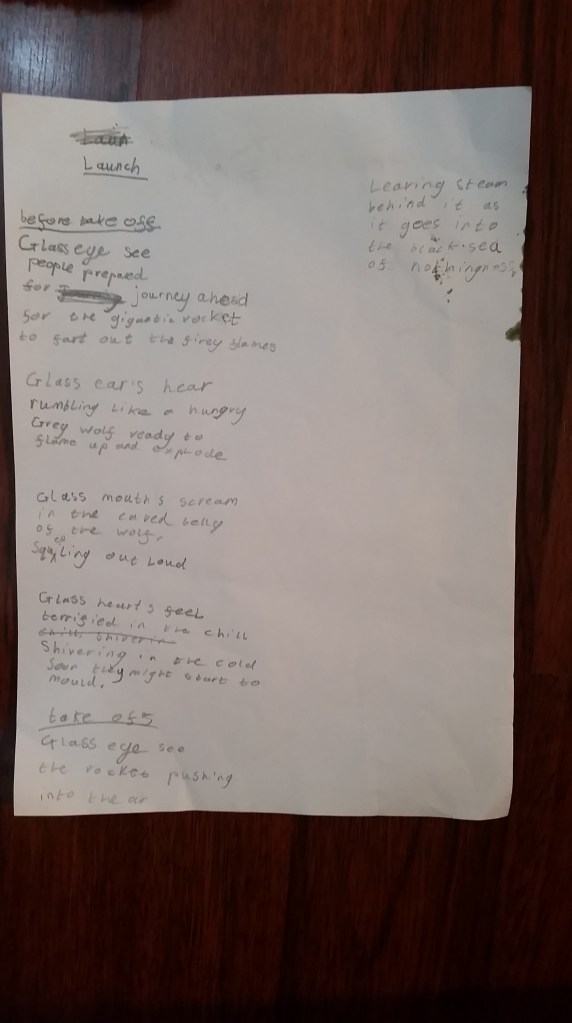 Launch
before take off
Glass eye see
people prepared
for journey ahead
for the gigantic rocket
to fart out the firey flames
Glass ear's hear
rumbling like a hungry
Grey wolf ready to
flame up and explode
Glass mouth's scream
in the caved belly
of the wolf,
Squealing out loud
Glass heart's feel
terrified in the chill
Shivering in the cold
Soon they might start to
mould.
take off
Glass eye see
the rocket pushing
into the air
Leaving steam
behind it as
it goes into
the black sea
of nothingness